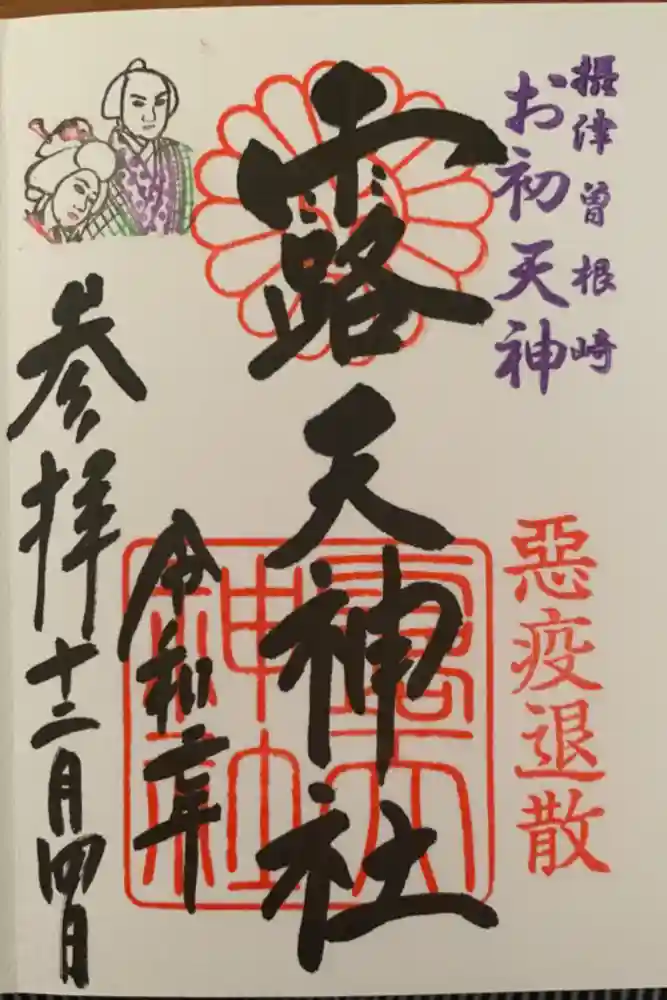 摂津曽根崎
お初天神
惡疫退散
露天神社
露天神社
令和二年
参拝
十二月四日